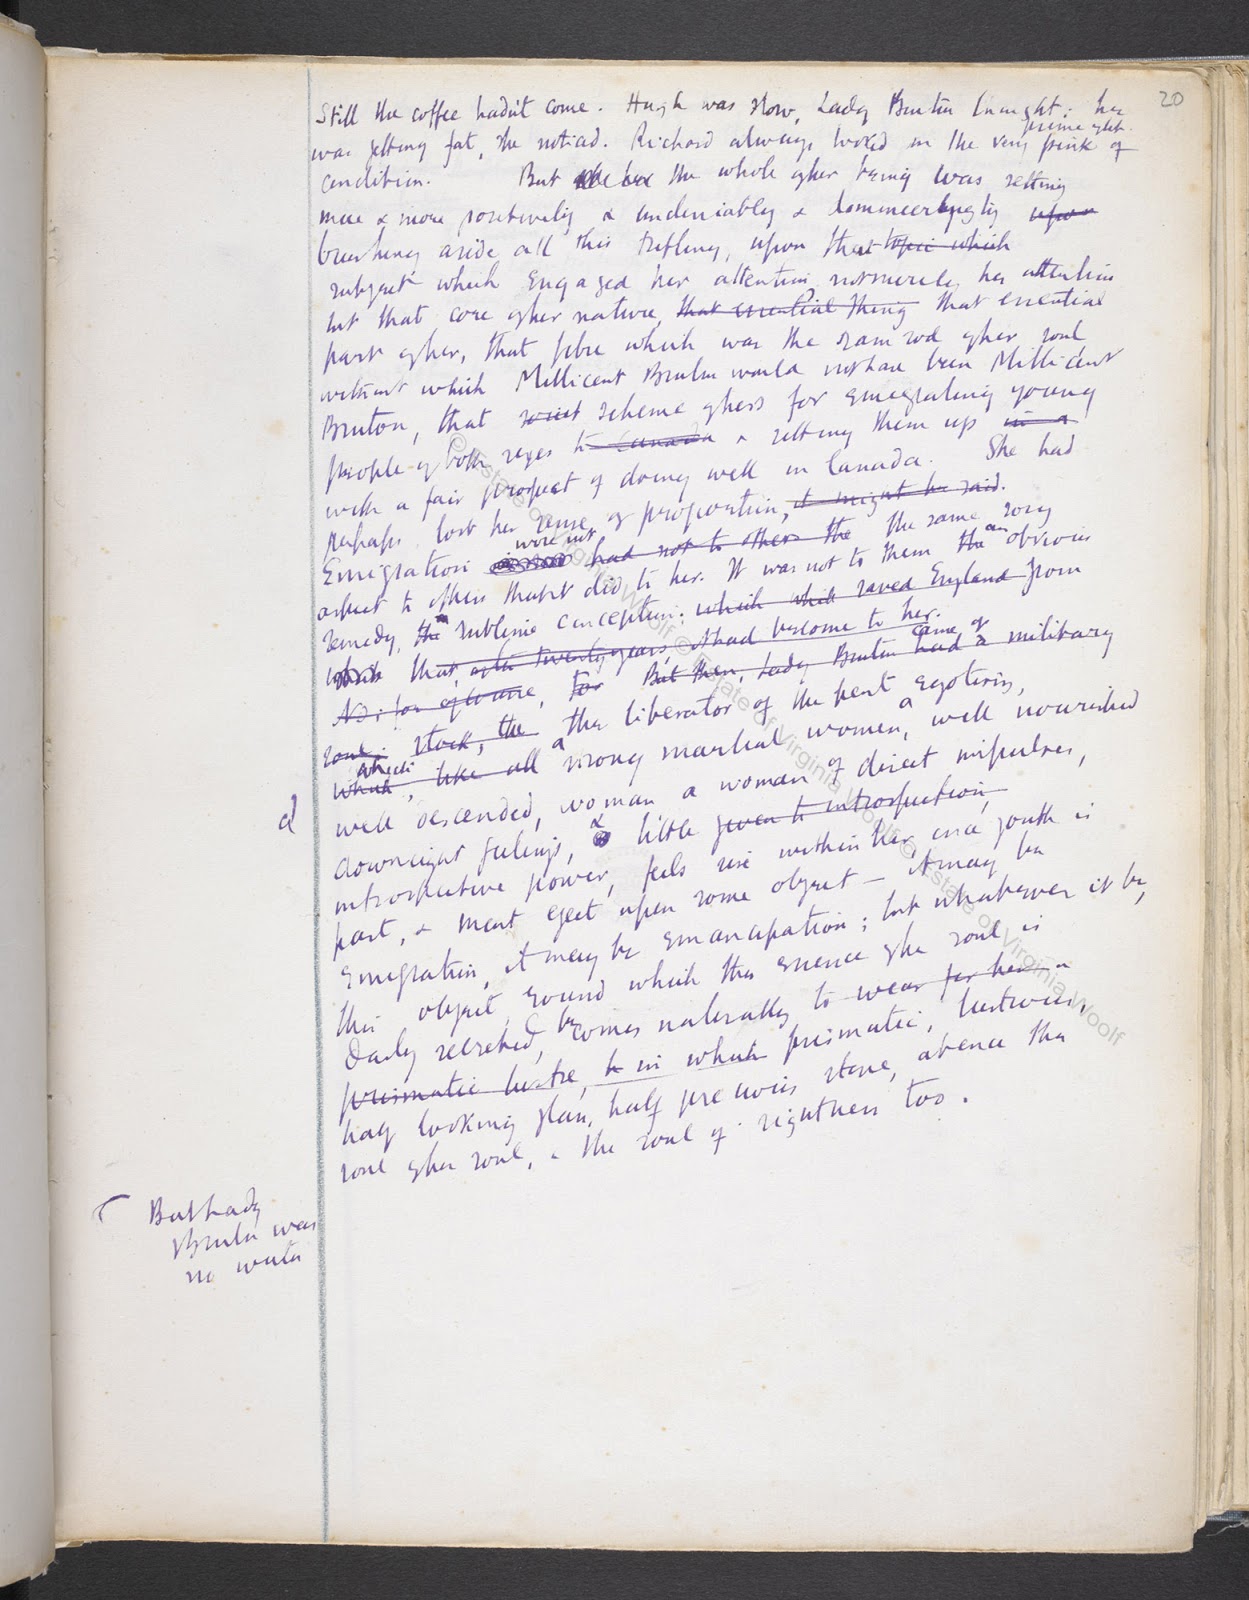 20
Still the coffee hadn't come. Hugh was slow, Lady Bruton thought; he
prime
was getting fat, she noticed. Richard always looked in the very pink of
condition. But the whole of her being was setting
more & more positively & undeniably & domineeringly upon
brushing aside all this trifling, upon that topic which
subject which engaged her attention, not merely her attention
but that core of her nature, that essential thing that essential
part of her, that fibre which was the ramrod of her soul
without which Millicent Bruton would not have been Millicent
Bruton, that scheme of hers for emigrating young
people of both sexes to Canada & setting them up in a
with a fair prospect of doing well in Canada. She had
perhaps lost her sense of proportion, it might be said.
were not
Emigration had not to others the the same rosy
aspect to others that it did to her. It was not to them the an obvious
remedy, the sublime conception; which saved England from
that, after twenty years, it had become to her.
came of
for But then, Lady Bruton had a military
stock, the the liberator of the pent egotism,
which
which, like all a strong martial women, a well nourished
d
well descended, woman a woman of direct impulses,
downright feelings, & little given to introspection,
introspective power, feels rise within her, once youth is
past, & must eject upon some object – it may be
Emigration, it may be emancipation; but whatever it be,
this object, round which the essence of the soul is
daily secreted, becomes naturally to wear for her a
prismatic lustre, in which prismatic, lustrous,
half looking glass, half precious stone, absence the
soul of her soul, & the soul of rightness too.
But Lady
Bruton was
no